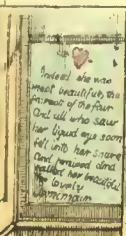 Indeed she was
most beautiful, the
fairest of the fair
And all who saw
her liquid eye soon
fell into her snare
And remained and
called her beautiful
lovely